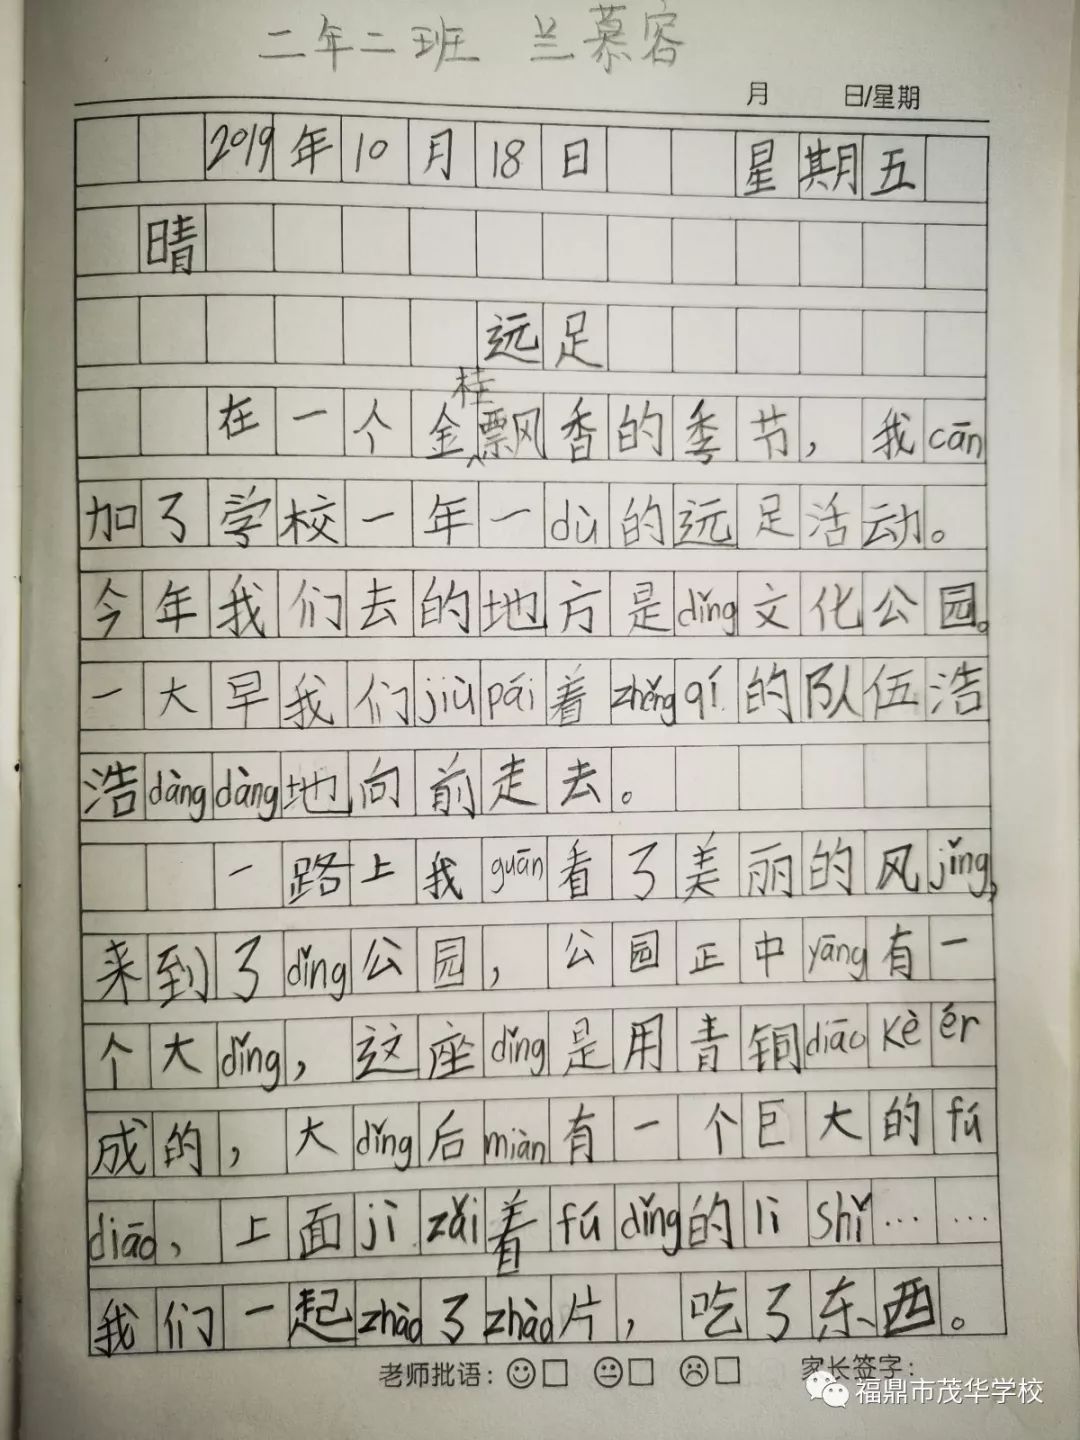 二年二班 兰慕容
月 日/星期
2019年10月18日 星期五
晴
远足
在一个金桂飘香的季节，我cān
加了学校一年一dù的远足活动。
今年我们去的地方是dǐng文化公园。
一大早我们jiù pái着zhěng qí的队伍浩
浩dàng dàng地向前走去。
一路上我guān看了美丽的风jǐng，
来到了dǐng公园，公园正中yāng有一
个大dǐng，这座dǐng是用青铜diāo kè ér
成的，大dǐng后miàn有一个巨大的fú
diāo，上面jì zǎi着fú dǐng的lì shǐ……
我们一起zhào了zhào片，吃了东西。
老师批语：☺□ 😐□ ☹□ 家长签字：
福鼎市茂华学校